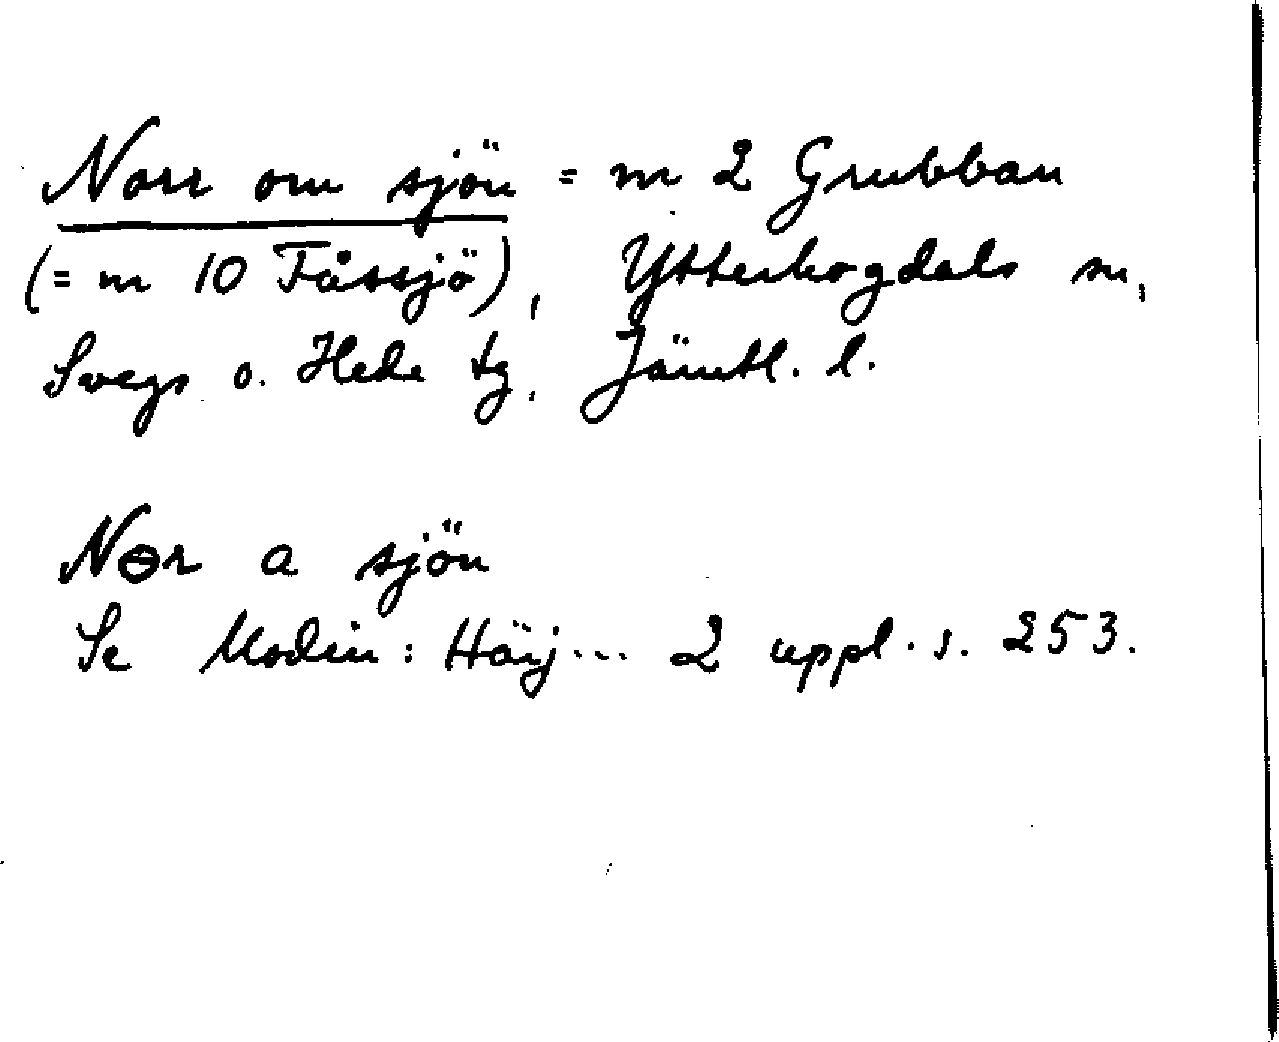 Norr om sjön = m 2 Grubban
(= m 10 Fåssjö), Ytterhogdals sn,
Svegs o. Hede tg, Jämtl. l.
Nɵr a sjön
Se Modin: Härj... 2 uppl. s. 253.